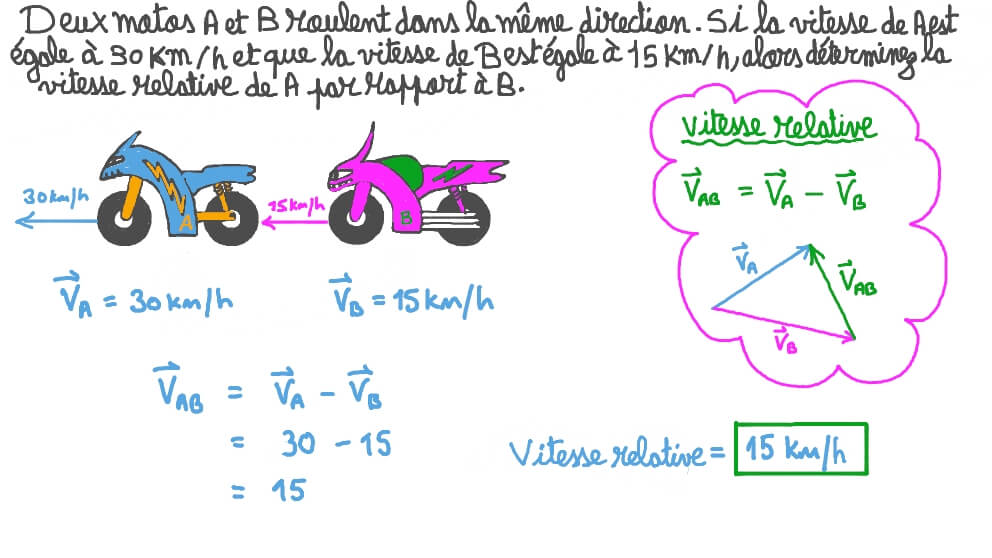 Deux motos A et B roulent dans la même direction. Si la vitesse de A est
égale à 30 Km/h et que la vitesse de B est égale à 15 km/h, alors déterminez la
vitesse relative de A par rapport à B.
vitesse relative
V⃗AB = V⃗A − V⃗B
30 km/h
A
15 km/h
B
V⃗A
V⃗AB
V⃗B
V⃗A = 30 km/h
V⃗B = 15 km/h
V⃗AB = V⃗A − V⃗B
= 30 − 15
= 15
Vitesse relative = 15 km/h